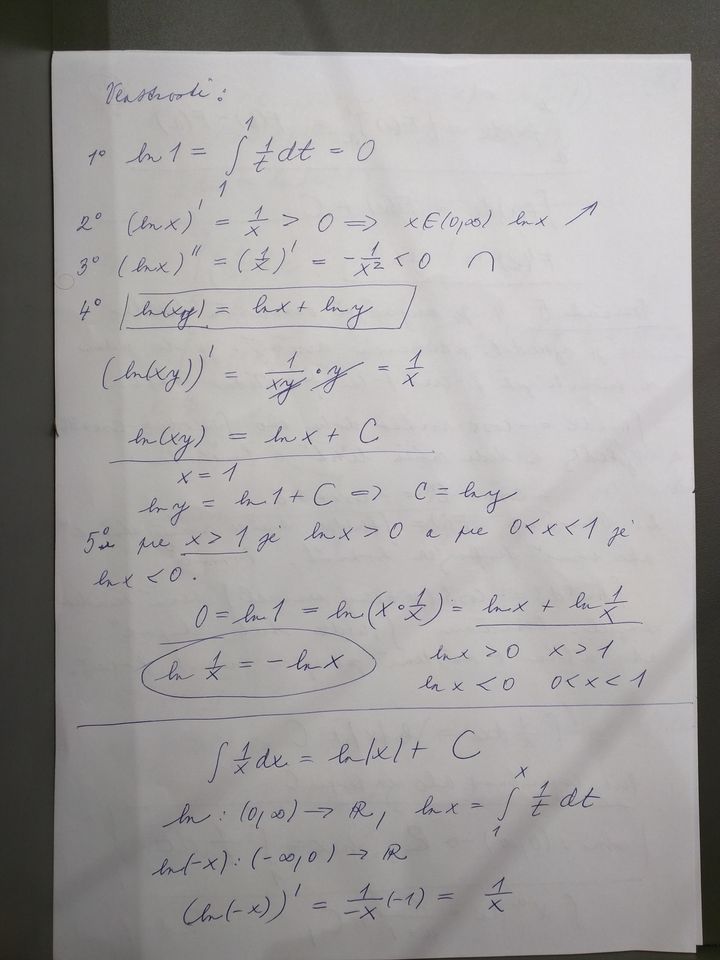 Vlastnosti:
1° ln 1 = ∫₁¹ 1/t dt = 0
2° (ln x)' = 1/x > 0 ⇒ x∈(0,∞) ln x ↗
3° (ln x)'' = (1/x)' = -1/x² < 0 ∩
4° ln(xy) = ln x + ln y
(ln(xy))' = 1/(xy) · y = 1/x
ln(xy) = ln x + C
x = 1
ln y = ln 1 + C ⇒ C = ln y
5° pre x > 1 je ln x > 0 a pre 0 < x < 1 je
ln x < 0.
0 = ln 1 = ln(x · 1/x) = ln x + ln 1/x
ln 1/x = - ln x
ln x > 0 x > 1
ln x < 0 0 < x < 1
∫ 1/x dx = ln|x| + C
ln : (0,∞) → ℝ, ln x = ∫₁ˣ 1/t dt
ln(-x) : (-∞,0) → ℝ
(ln(-x))' = 1/-x (-1) = 1/x